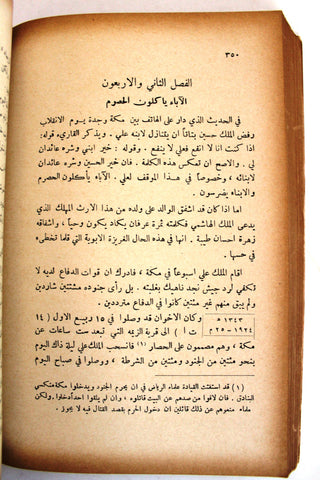 ٣٥٠
الفصل الثاني والاربعون
الآباء يأكلون الحصرم
في الحديث الذي دار على الهاتف بين مكة وجدة يوم الانقلاب
رفض الملك حسين بتاتاً ان يتنازل لابنه علي . ويذكر القاريء قوله :
اذا كنت انا لا انفع فعلي لا ينفع . وقوله : خير ابني وشره عائدان
لي . والاصح ان تعكس هذه الكلمة . فان خير الحسين وشره عائدان
لابنائه ، وخصوصاً في هذا الموقف لعلي . الآباء يأكلون الحصرم
والابناء يضرسون .
اما اذا كان قد اشفق الوالد على ولده من هذا الارث المهلك الذي
يدعى الملك الهاشمي فكلمته ثمرة عرفان يكاد يكون وحياً ، واشفاقه
زهرة احسان طيبة . انها في هذه الحال الغريزة الابوية التي قلما تخطىء
في حسها .
اقام الملك علي اسبوعاً في مكة ، فادرك ان قوات الدفاع لديه لا
تكفي لرد جيش نجد ناهيك بغلبته . بل رأى جنوده مشتتين شاردين
ولم يبق منهم غير مئتين كانوا في الدفاع مترددين .
١٣٤٣ هـ
١٩٢٤ - ٢٥ م
وكان الاخوان قد وصلوا في ١٥ ربيع الاول ( ١٤
ت ١ ) الى قرية الزيمه التي تبعد ست ساعات عن
مكة ، وهم مصممون على الحصار (١) فانسحب الملك علي ليلة ذاك اليوم
بنحو مئتين من الجنود ومئتين من الشرطة ، ووصلوا في صباح اليوم
(١) قد استفتت القيادة علماء الرياض في ان يجوز لهم الجنود ويدخلوا مكة منكسي
البنادق . فكان الجواب ان ادخلوا ، وان لم يلقوا احداً دخلوا ، ولكن
علماء منعوهم عن ذلك قائلين ان دخول الحرم بقصد القتال فيه لا يجوز .